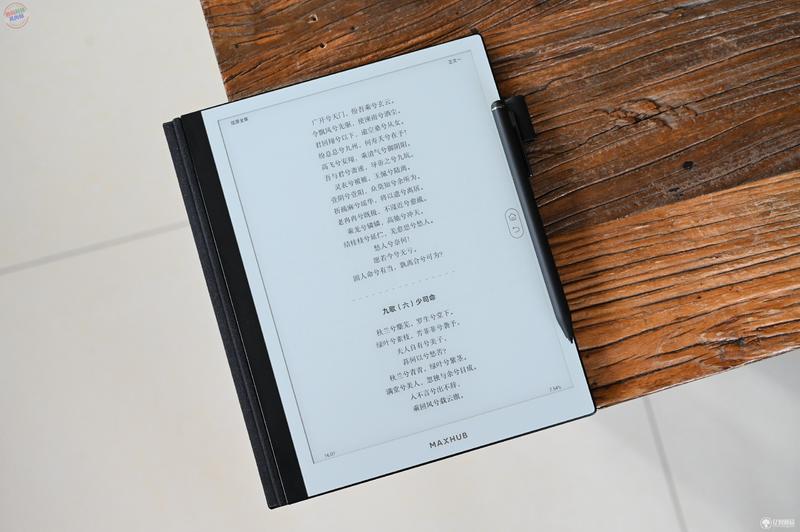 屈原全集
正文一
广开兮天门，纷吾乘兮玄云。
令飘风兮先驱，使涷雨兮洒尘。
君回翔兮以下，逾空桑兮从女。
纷总总兮九州，何寿夭兮在予！
高飞兮安翔，乘清气兮御阴阳。
吾与君兮斋速，导帝之兮九坑。
灵衣兮被被，玉佩兮陆离。
壹阴兮壹阳，众莫知兮余所为。
折疏麻兮瑶华，将以遗兮离居。
老冉冉兮既极，不寖近兮愈疏。
乘龙兮辚辚，高驰兮冲天。
结桂枝兮延伫，羌愈思兮愁人。
愁人兮奈何！
愿若今兮无亏。
固人命兮有当，孰离合兮可为？
九歌（六）少司命
秋兰兮麋芜，罗生兮堂下。
绿叶兮素枝，芳菲菲兮袭予。
夫人自有兮美子，
荪何以兮愁苦？
秋兰兮青青，绿叶兮紫茎。
满堂兮美人，忽独与余兮目成。
入不言兮出不辞，
乘回风兮载云旗。
16:01
7.54%
MAXHUB